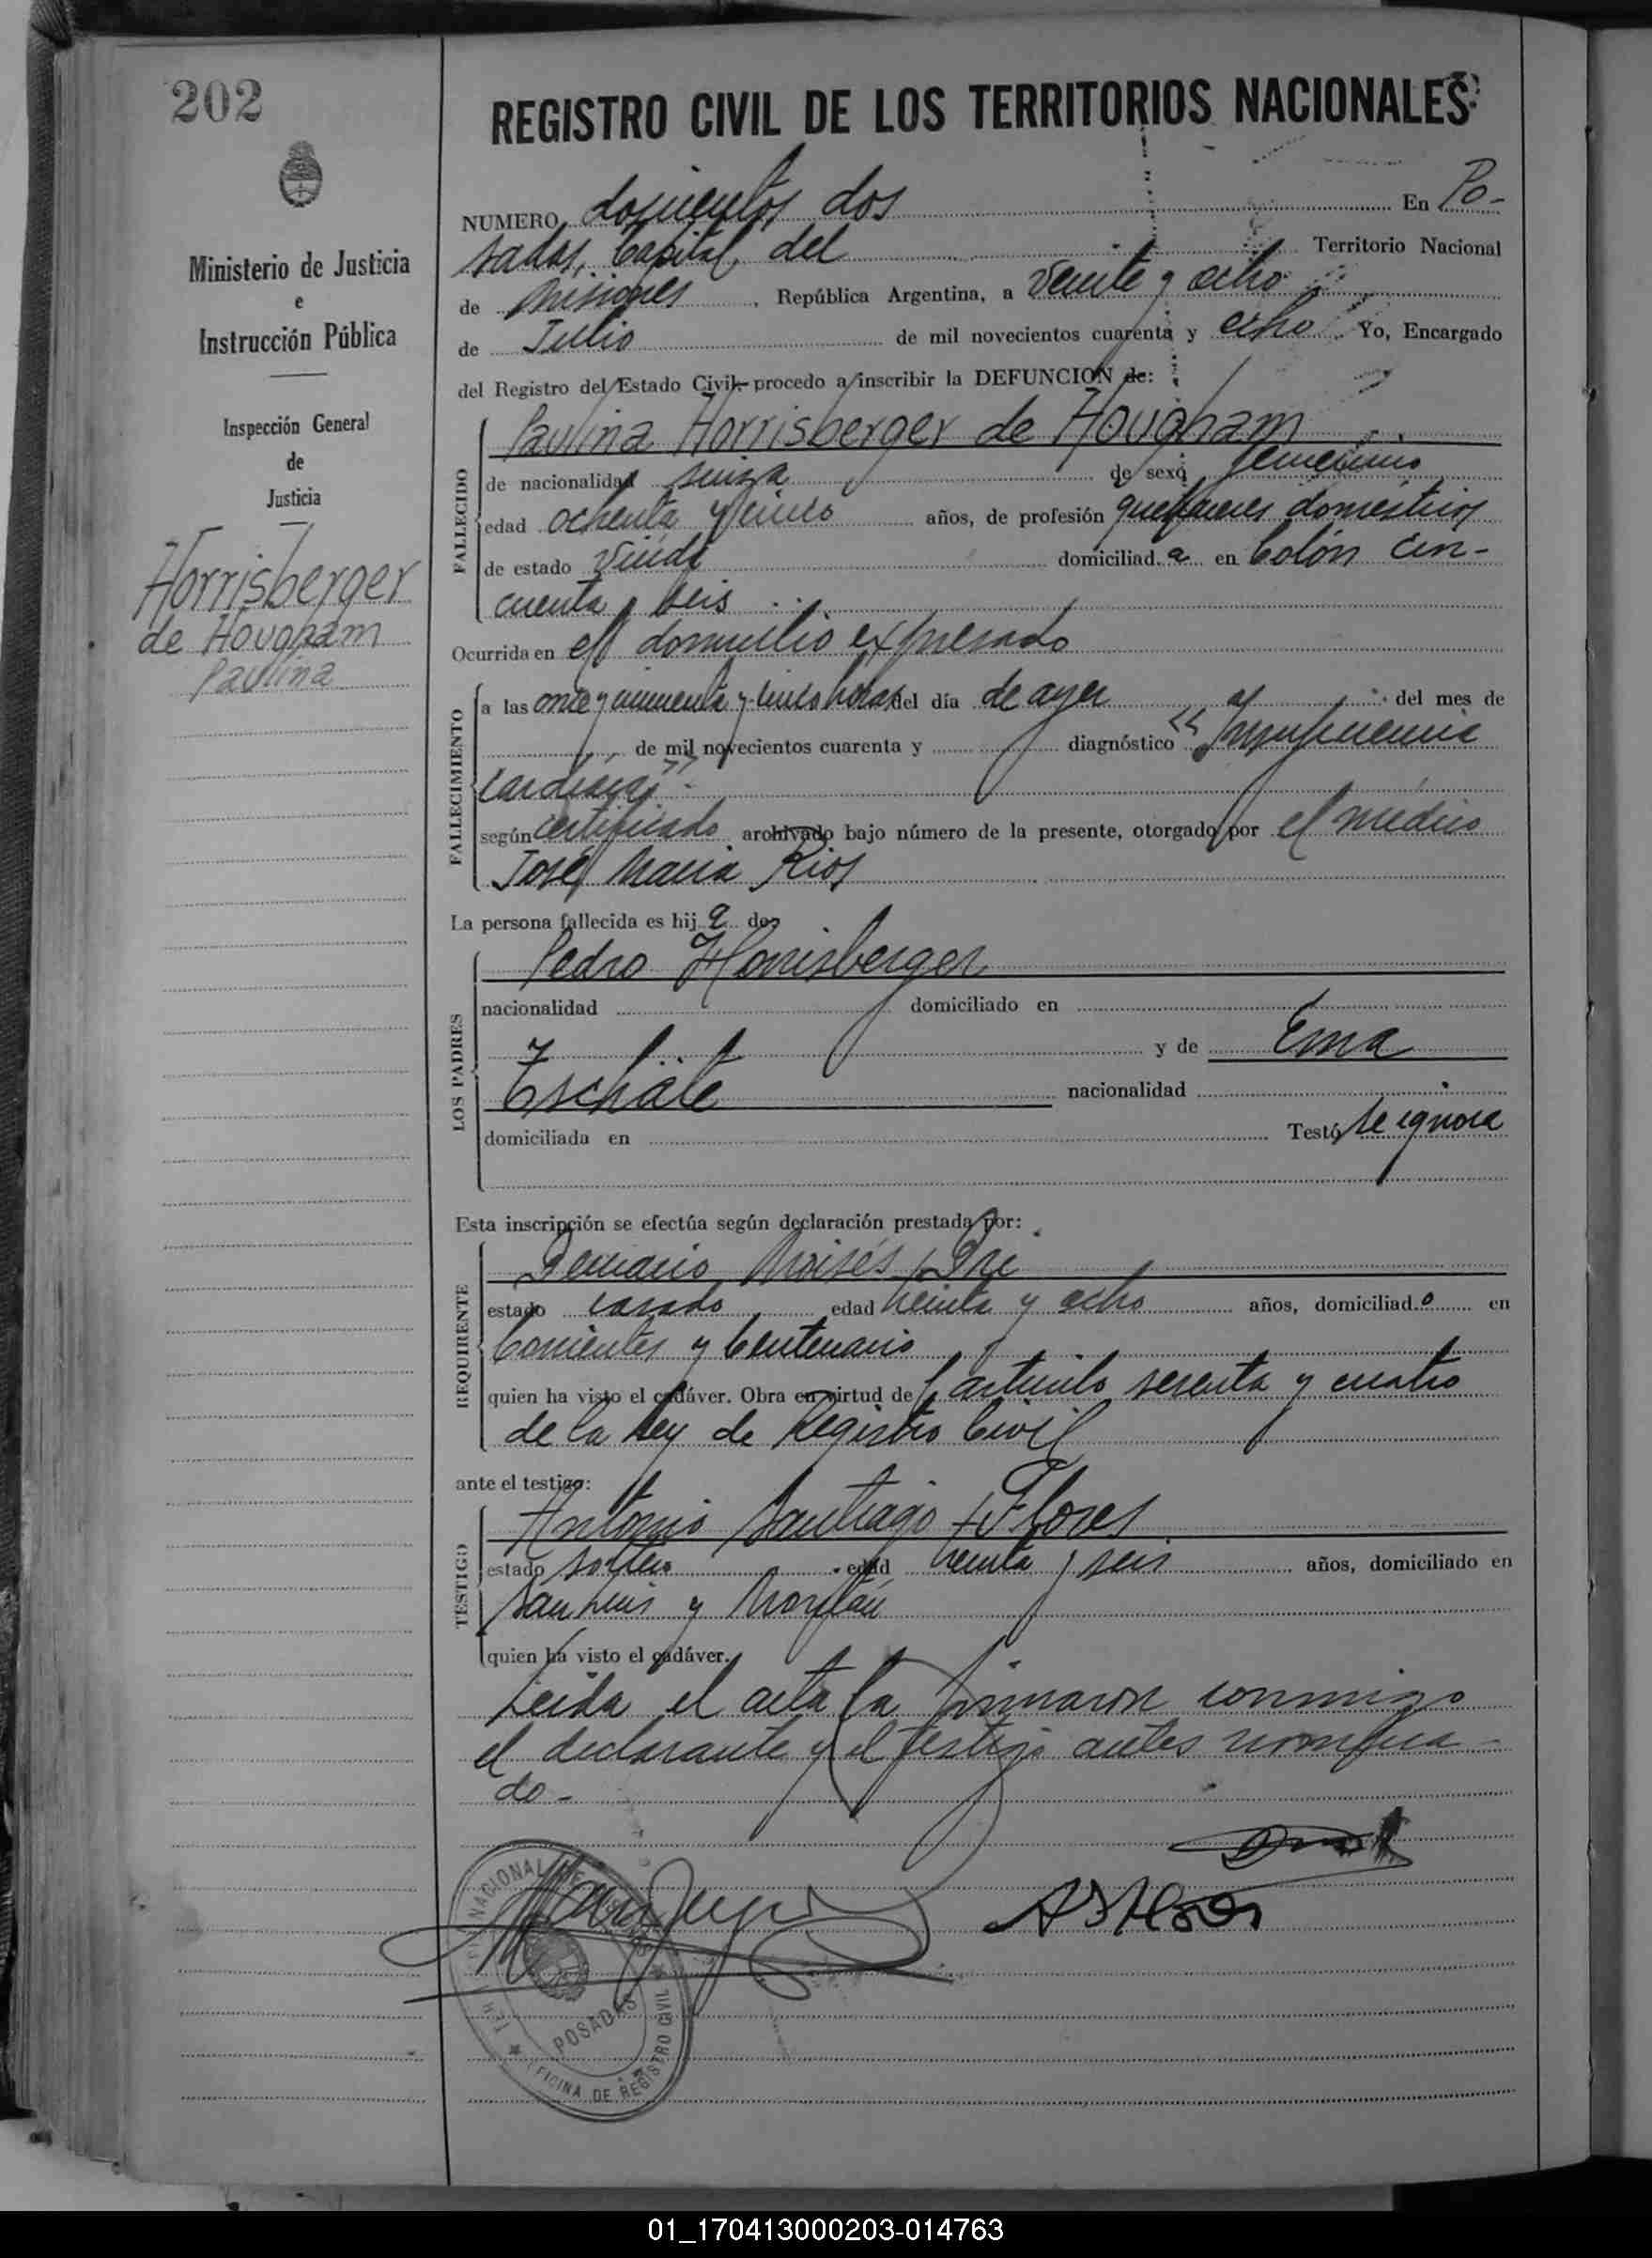 202
Ministerio de Justicia
e
Instrucción Pública
Inspección General
de
Justicia
Horrisberger
de Hougham
Paulina
REGISTRO CIVIL DE LOS TERRITORIOS NACIONALES
NUMERO doscientos dos En Po-
sadas, Capital del Territorio Nacional
de Misiones, República Argentina, a veinte y ocho
de Julio de mil novecientos cuarenta y ocho Yo, Encargado
del Registro del Estado Civil procedo a inscribir la DEFUNCION de:
FALLECIDO
Paulina Horrisberger de Hougham
de nacionalidad suiza de sexo femenino
edad ochenta y cinco años, de profesión quehaceres domésticos
de estado viuda domiciliada en Colón cin-
cuenta y seis
Ocurrida en el domicilio expresado
FALLECIMIENTO
a las once y cincuenta y cinco horas del día de ayer del mes de
de mil novecientos cuarenta y diagnóstico "Insuficiencia
cardiaca"
según certificado archivado bajo número de la presente, otorgado por el médico
José María Rios
La persona fallecida es hija de:
LOS PADRES
Pedro Horrisberger
nacionalidad domiciliado en
y de Ema
Tschäte
nacionalidad
domiciliada en Testó se ignora
Esta inscripción se efectúa según declaración prestada por:
REQUIRENTE
Genaro Moisés Dre
estado casado edad treinta y ocho años, domiciliado en
Corrientes y Centenario
quien ha visto el cadáver. Obra en virtud del artículo sesenta y cuatro
de la Ley de Registro Civil
ante el testigo:
TESTIGO
Antonio Santiago Flores
estado soltero edad treinta y seis años, domiciliado en
San Luis y
quien ha visto el cadáver.
Leida el acta la firmaron conmigo
el declarante y el testigo antes nombra-
do-
POSADAS
OFICINA DE REGISTRO CIVIL
01_170413000203-014763